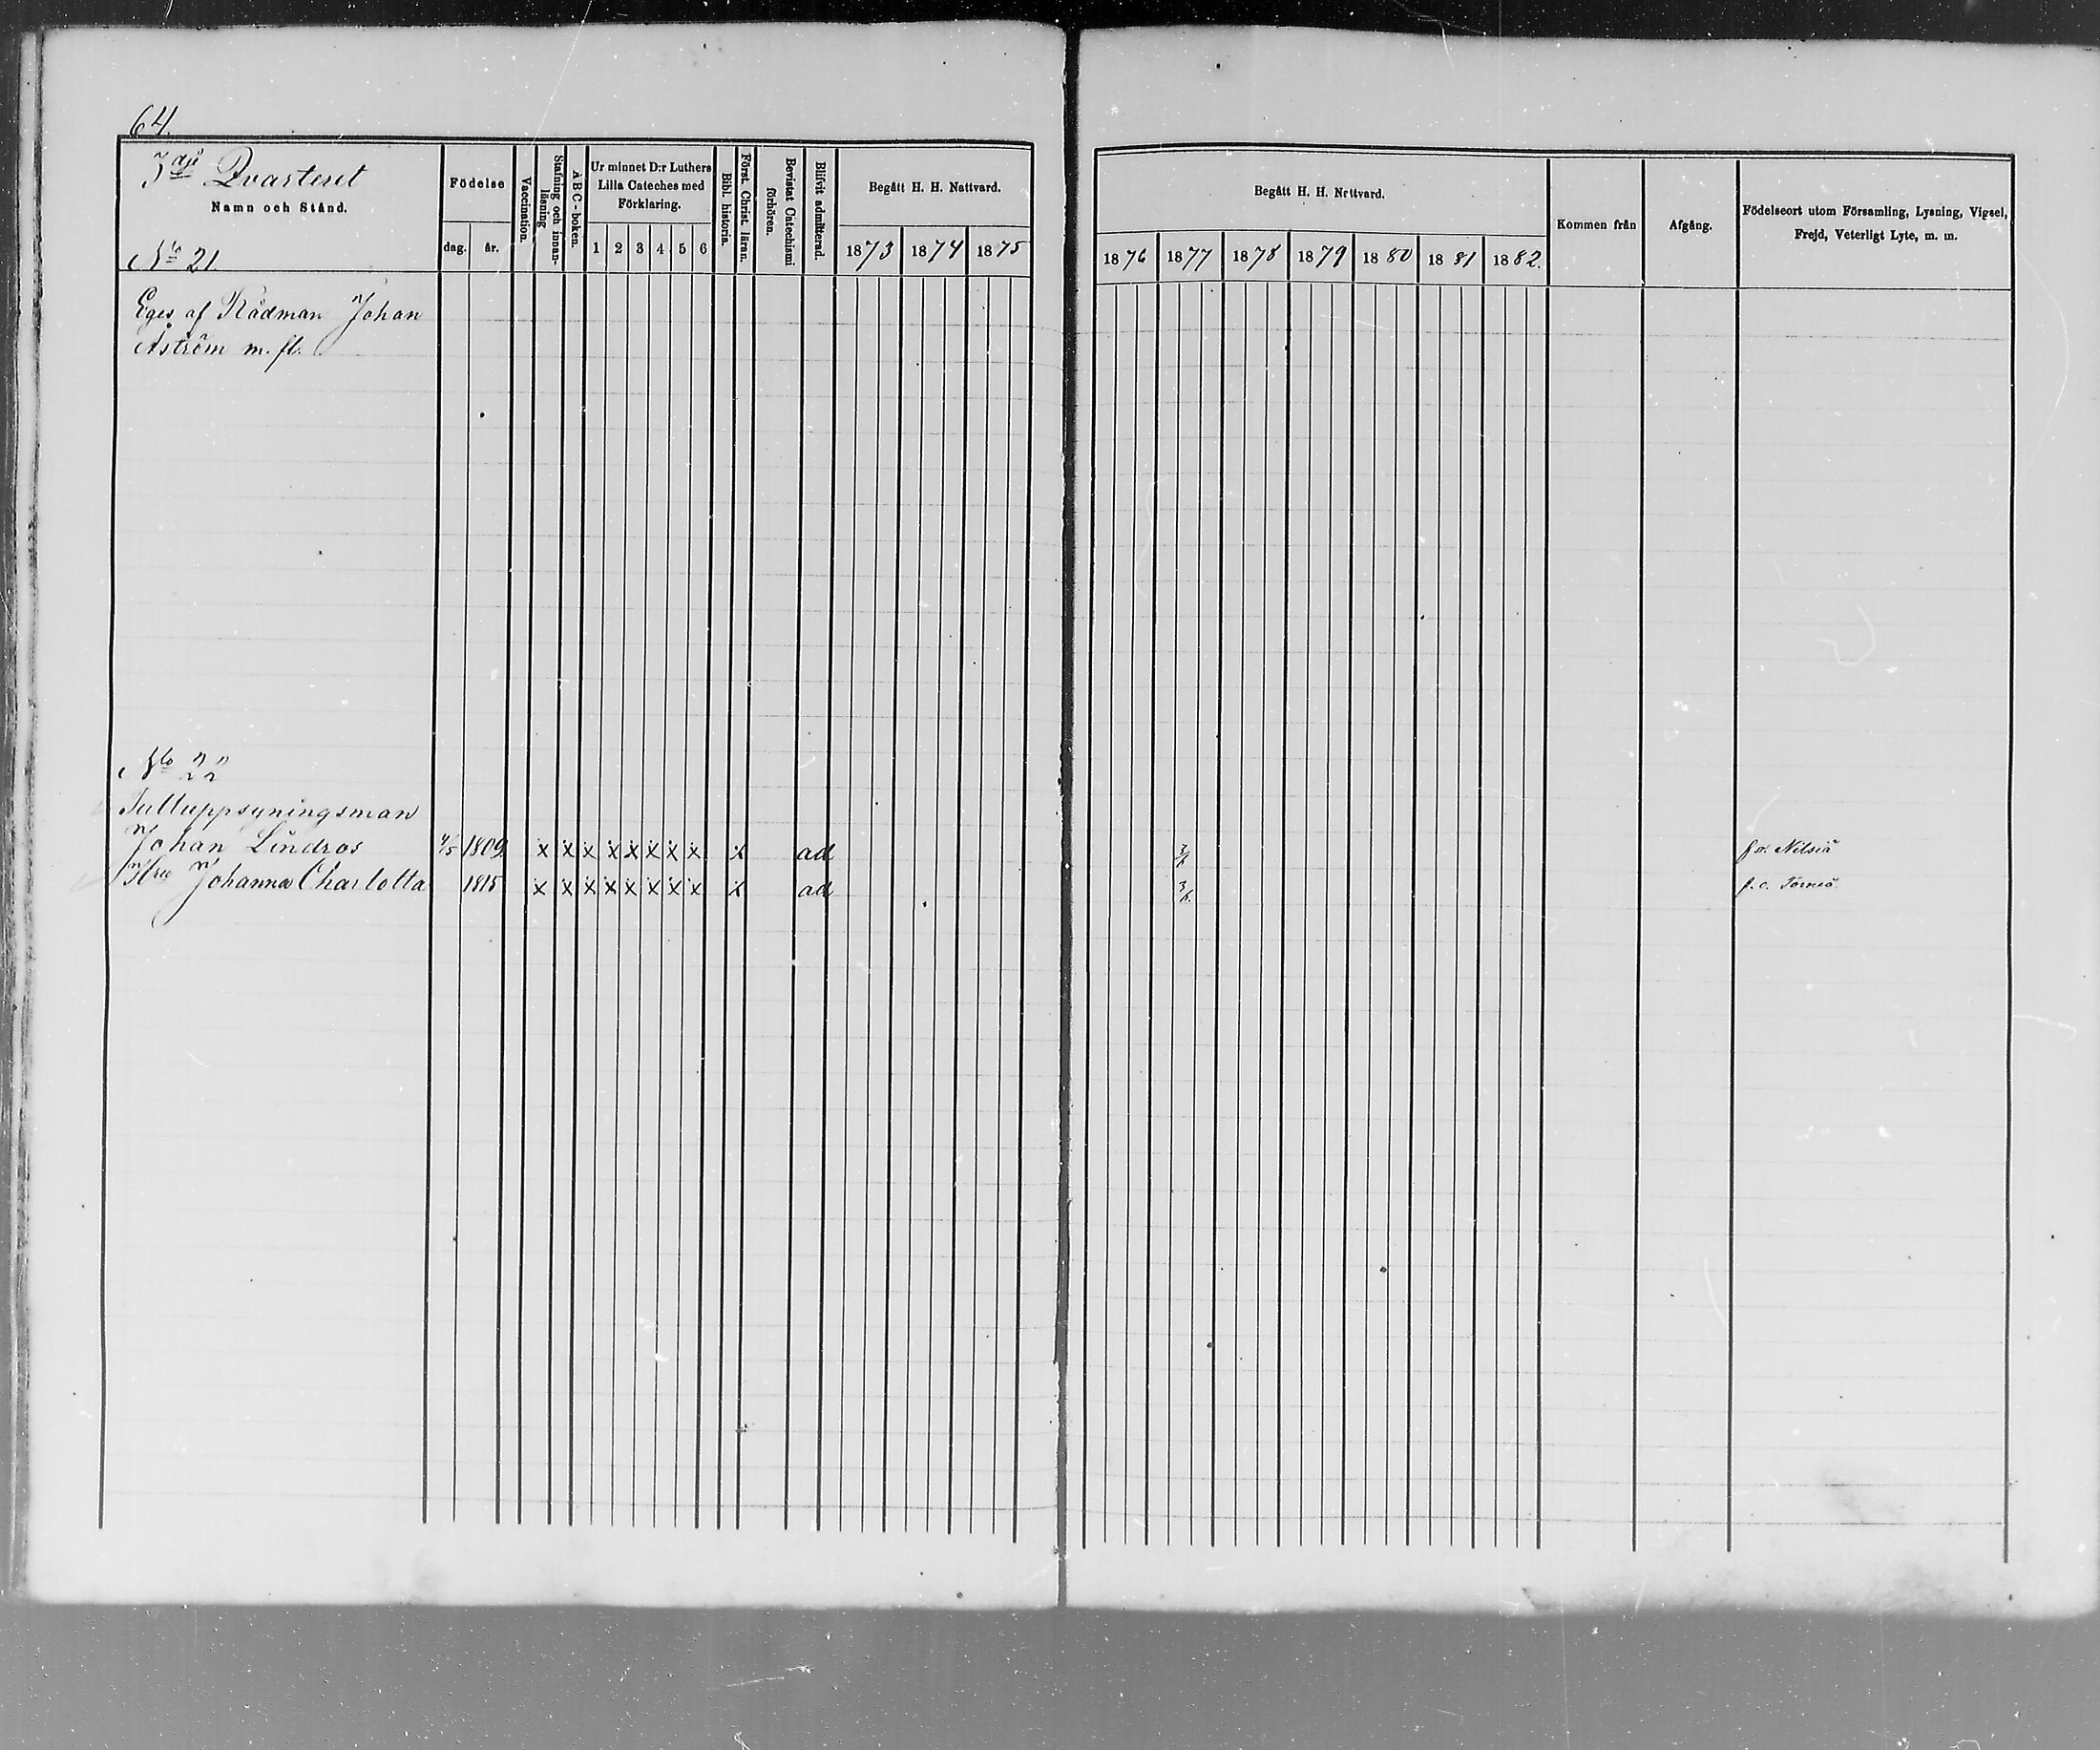 64.
3dje Qvarteret
Namn och Stånd.
No 21.
Födelse
dag. år.
Vaccination.
Stafning och innan-
läsning
ABC-boken.
Ur minnet D:r Luthers
Lilla Cateches med
Förklaring.
1 2 3 4 5 6
Bibl. historia.
Först. Christ. läran.
Bevistat Catechismi
förhören.
Blifvit admitterad.
Begått H. H. Nattvard.
1873 1874 1875
Begått H. H. Nettvard.
1876 1877 1878 1879 1880 1881 1882.
Kommen från
Afgång.
Födelseort utom Församling, Lysning, Vigsel,
Frejd, Veterligt Lyte, m. m.
Eges af Rådman Johan
Åström m. fl.
No 22
Tulluppsyningsman
Johan Lindros 1809. x x x x x x x x x ad f. o. Nilsiä
Hru Johanna Charlotta 1815 x x x x x x x x x ad f. o. Torneå